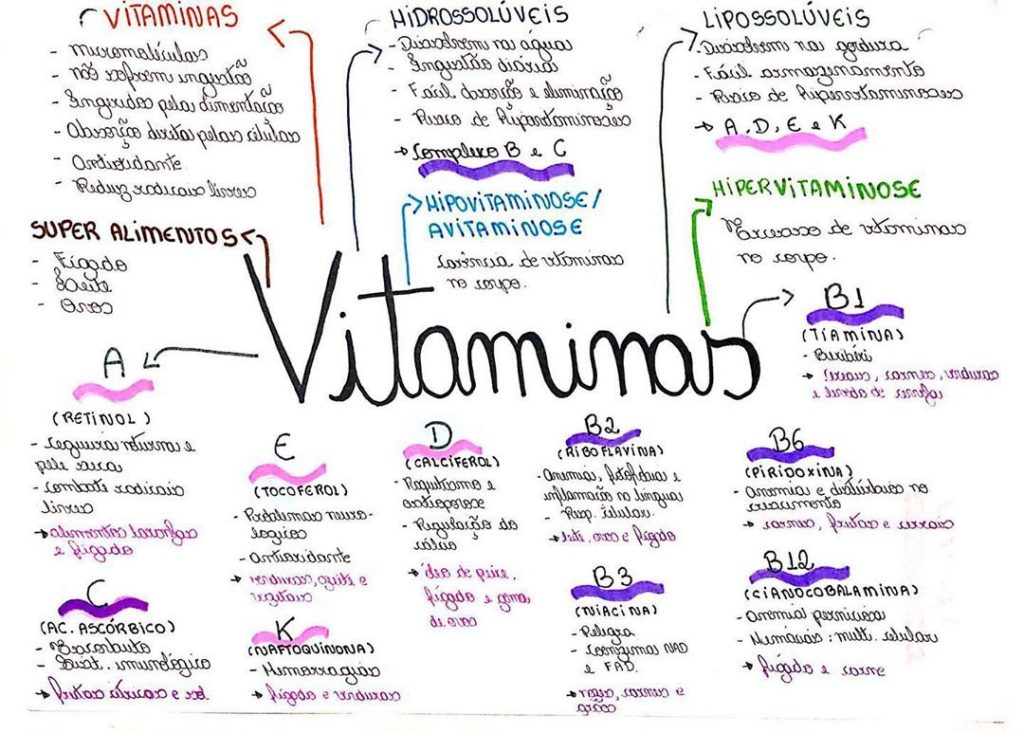 VITAMINAS
- micromoléculas
- não sofrem ingestão
- Ingeridas pela alimentação
- Absorção direta pelas células
- Antioxidante
- Reduz radicais livres
HIDROSSOLÚVEIS
- Dissolvem na água
- Ingestão diária
- Fácil absorção e eliminação
- Risco de Hipovitaminoses
→ Complexo B e C
LIPOSSOLÚVEIS
- Dissolvem na gordura
- Fácil armazenamento
- Risco de hipervitaminoses
→ A, D, E e K
SUPER ALIMENTOS
- Fígado
- Leite
- Ovos
HIPOVITAMINOSE/
AVITAMINOSE
Carência de vitaminas
no corpo.
HIPERVITAMINOSE
Excesso de vitaminas
no corpo.
Vitaminas
B1
(TIAMINA)
- Beribéri
→ cereais, carnes, verduras
e
A
(RETINOL)
- cegueira noturna e
pele seca
- combate radicais
livres
→ alimentos
e fígado
E
(TOCOFEROL)
- Problemas neuro-
logicos
- Antioxidante
→ verduras, azeite e
vegetais
D
(CALCIFEROL)
- Raquitismo e
osteoporose
- Regulação do
cálcio
→ óleo de peixe,
fígado e gema
de ovos
B2
(RIBOFLAVINA)
- Anemias, fotofobia e
inflamação na língua
- Resp. celular.
→ leite, ovos e fígado
B6
(PIRIDOXINA)
- Anemias e distúrbios no
crescimento
→ carnes, frutas e cereais
C
(AC. ASCÓRBICO)
- Escorbuto
- Sist. imunológico
→ frutas cítricas e
K
(NAFTOQUINONA)
- Hemorragias
→ fígado e verduras
B3
(NIACINA)
- Pelagra
- Coenzimas NAD
e FAD.
→ carnes e
grãos
B12
(CIANOCOBALAMINA)
- Anemia perniciosa
- Hemácias: mult. celular
→ fígado e carne